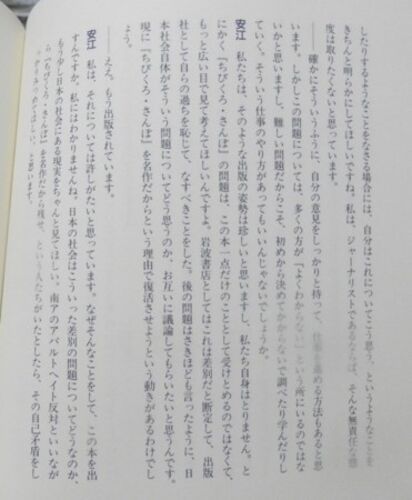 したりするようなことをなさる場合には、自分はこれについてこう思う、というようなことを
きちんと明らかにしてほしいですね。私は、ジャーナリストであるならば、そんな無責任な態
度は取りたくないと思っています。
――確かにそういうふうに、自分の意見をしっかりと持って、仕事を進める方法もあると思
います。しかしこの問題については、多くの方が「よくわからない」という所にいるのではな
いかと思いますし、難しい問題だからこそ、初めから決めてかからないで調べたり学んだりし
ていく。そういう仕事のやり方があってもいいんじゃないでしょうか。
安江 私たちは、そのような出版の姿勢は珍しいと思いますし、私たち自身はとりません。と
にかく『ちびくろ・さんぼ』の問題は、この本一点だけのこととして受けとめるのではなくて、
もっと広い目で見て考えてほしいんですよ。岩波書店としてはこれは差別だと断定して、出版
社として自らの過ちを恥じて、なすべきことをした。後の問題はさきほども言ったように、日
本社会自体がそういう問題についてどう思うのか、お互いに議論してもらいたいと思うんです。
現に『ちびくろ・さんぼ』を名作だからという理由で復活させようという動きがあるわけでし
ょう。
――ええ。もう出版されています。
安江 私は、それについては許しがたいと思っています。なぜそんなことをして、この本を出
すんですか、私にはわかりませんね。日本の社会はこういった差別の問題についてどうなのか、
もう少し日本の社会にある現実をちゃんと見てほしい。南アのアパルトヘイト反対といいなが
ら『ちびくろ・さんぼ』を名作だから残せ、という人たちがいたとしたら、その自己矛盾をし
っかりみつめてほしい、と思います。